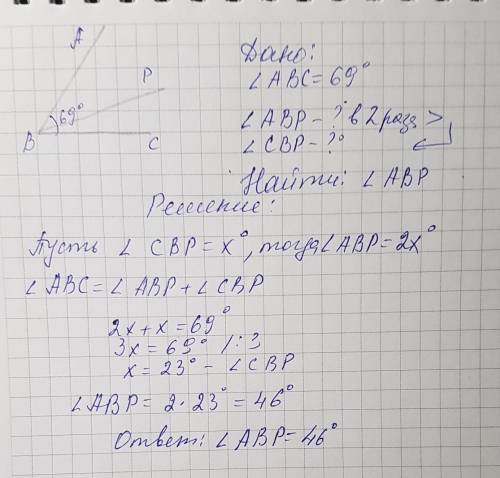 A
P
69°
B
C
Дано:
∠ABC = 69°
∠ABP - ? в 2 раза >
∠CBP - ?°
Найти: ∠ABP
Решение:
Пусть ∠ CBP = x°, тогда ∠ABP = 2x°
∠ABC = ∠ ABP + ∠ CBP
2x + x = 69°
3x = 69° /: 3
x = 23° - ∠ CBP
∠ABP = 2 · 23° = 46°
Ответ: ∠ ABP = 46°